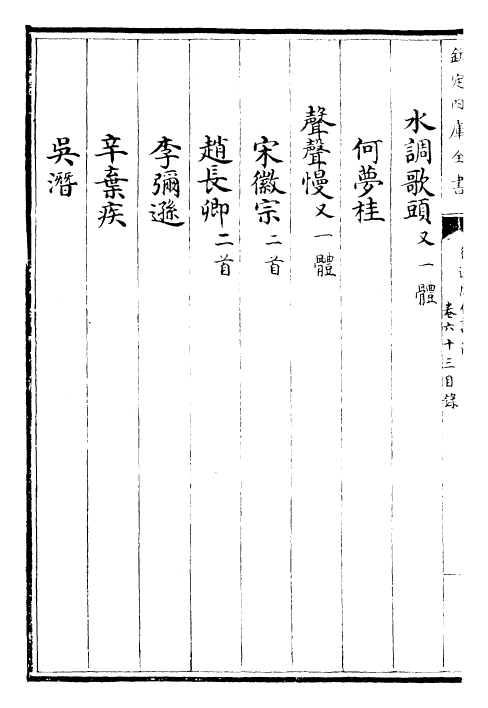 欽定四庫全書
卷六十三目錄
水調歌頭又一體
何夢桂
聲聲慢又一體
宋徽宗二首
趙長卿二首
李彌遜
辛棄疾
吳潛